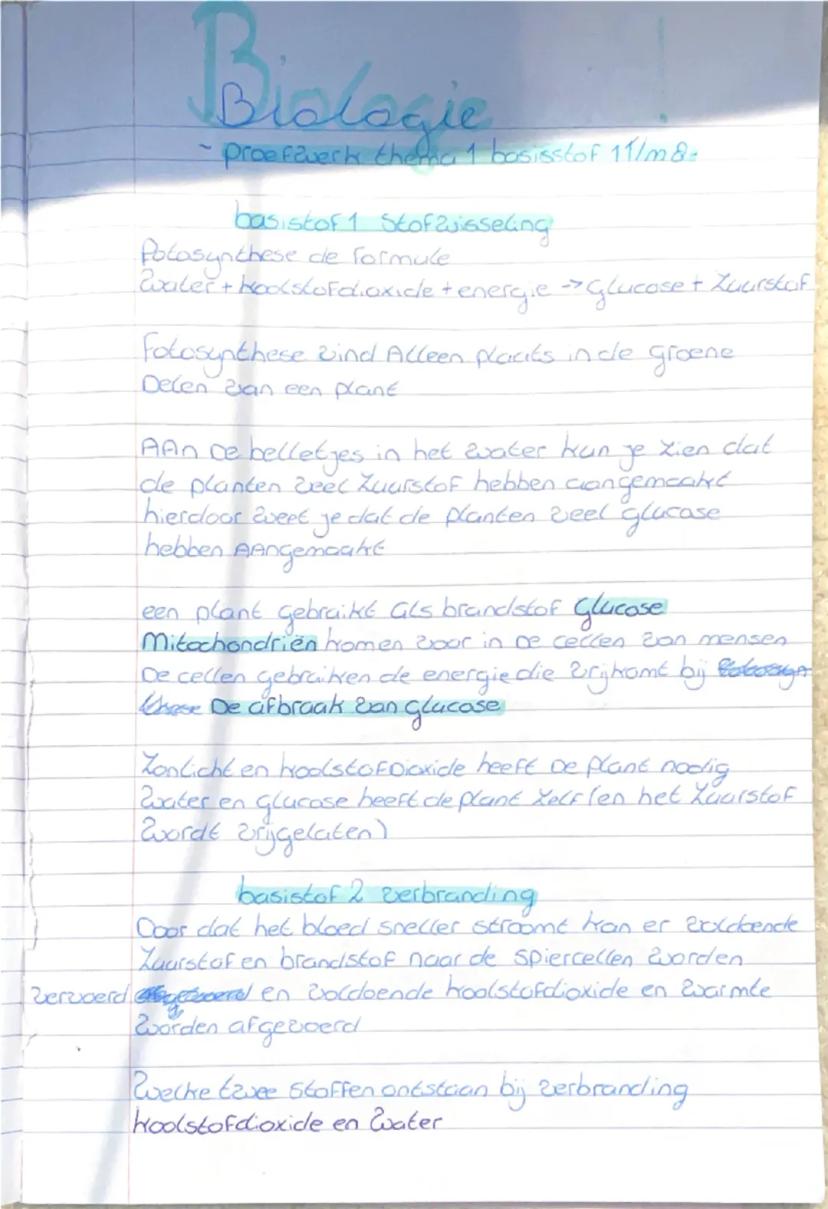 Biologie
- proefwerk thema 1 basisstof 1 T/m 8-
basistof 1 Stofwisseling
Fotosynthese de formule
Water + koolstofdioxide + energie -> Glucose + Zuurstof
Fotosynthese vind Alleen plaats in de groene
Delen van een plant
AAn De belletjes in het water kun je zien dat
de planten veel Zuurstof hebben aangemaakt
hierdoor weet je dat de planten veel glucose
hebben AAngemaakt
een plant gebruikt als brandstof Glucose
Mitochondriën komen voor in De cellen van mensen
De cellen gebruiken de energie die vrijkomt bij
De afbraak van glucose
Zonlicht en koolstofDioxide heeft De plant nodig
Water en glucose heeft de plant zelf (en het Zuurstof
Wordt vrijgelaten)
basistof 2 verbranding
Door dat het bloed sneller stroomt kan er voldoende
Zuurstof en brandstof naar de spiercellen worden
vervoerd en voldoende koolstofdioxide en warmte
worden afgevoerd
Welke twee stoffen ontstaan bij verbranding
koolstofdioxide en Water